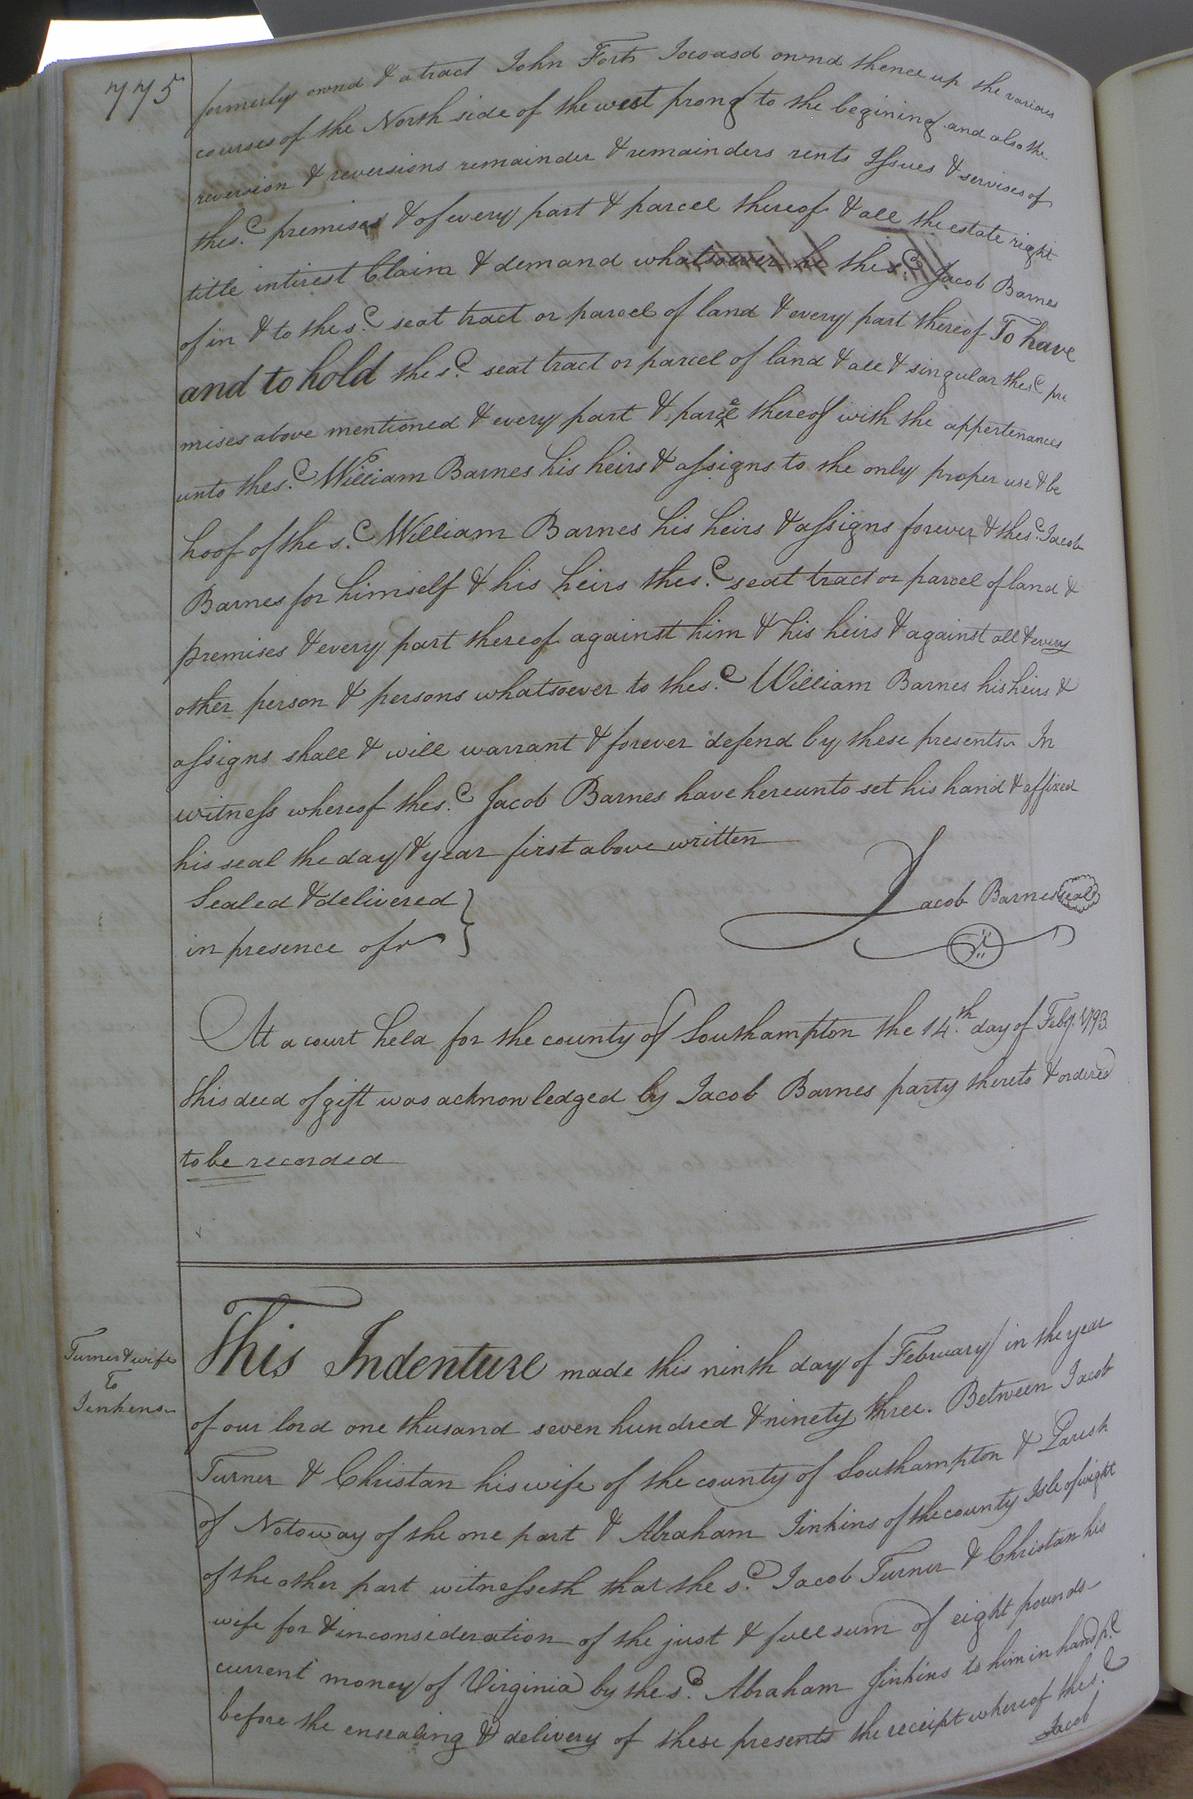 775
formerly ownd & a tract John Forts Jacoasd ownd thence up the various
courses of the North side of the west prong to the begining and also the
reversion & reversions remainder & remainders rents Issues & servises of
the s.d premises & of every part & parcel thereof & all the estate right
title intirest Claim & demand whatsoever he the s.d Jacob Barnes
of in & to the s.d seat tract or parcel of land & every part thereof To have
and to hold the s.d seat tract or parcel of land & all & singular the s.d pre
mises above mentioned & every part & parcel thereof with the appertenances
unto the s.d William Barnes his heirs & assigns to the only proper use & be
hoof of the s.d William Barnes his heirs & assigns forever & the s.d Jacob
Barnes for himself & his heirs the s.d seat tract or parcel of land &
premises & every part thereof against him & his heirs & against all & every
other person & persons whatsoever to the s.d William Barnes his heirs &
assigns shall & will warrant & forever defend by these presents In
witness whereof the s.d Jacob Barnes have hereunto set his hand & affixed
his seal the day & year first above written
Sealed & delivered
in presence of
Jacob Barnes seal
At a court held for the county of Southampton the 14.th day of Feby. 1793
this deed of gift was acknowledged by Jacob Barnes party thereto & ordered
to be recorded
Turner & wife
To
Jenkens
This Indenture made this ninth day of February in the year
of our lord one thusand seven hundred & ninety three. Between Jacob
Turner & Christan his wife of the county of Southampton & Parish
of Notoway of the one part & Abraham Jinkins of the county Isle of wight
of the other part witnesseth that the s.d Jacob Turner & Christan his
wife for & in consideration of the just & full sum of eight pounds
current money of Virginia by the s.d Abraham Jinkins to him in hand p.d
before the ensealing & delivery of these presents the receipt whereof the s.d
Jacob